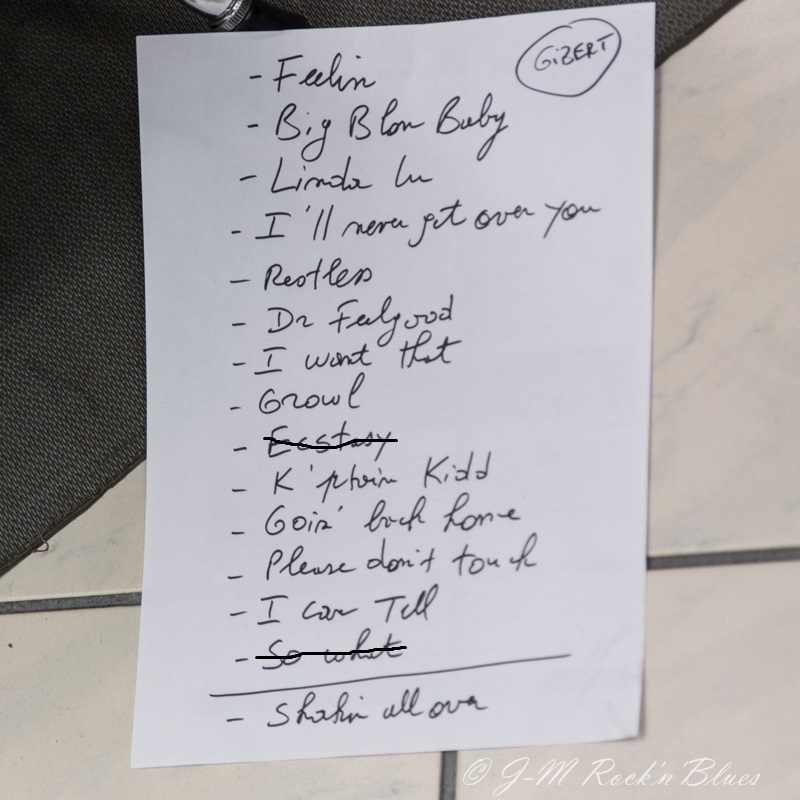 GiBERT
- Feelin
- Big Blon Baby
- Linda Lu
- I'll never get over you
- Restless
- Dr Feelgood
- I want that
- Growl
- Ecstasy
- K'ptain Kidd
- Goin' back home
- Please don't touch
- I can Tell
- So what
- Shakin all over
© J-M Rock'n Blues